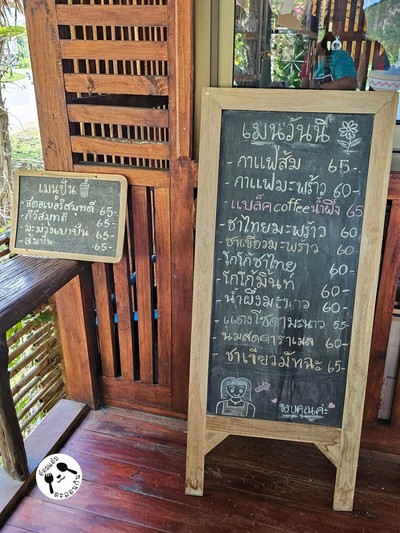 เมนูปั่น
- สตอเบอรี่สมูทตี้ 65-
- กีวี่สมูทตี้ 65-
- มะม่วงเบาปั่น 65-
- ส้มปั่น 65-
เมนูวันนี้
- กาแฟส้ม 65-
- กาแฟมะพร้าว 60-
- แบล็คcoffeeน้ำผึ้ง 65
- ชาไทยมะพร้าว 60
- ชาเขียวมะพร้าว 60-
- โกโก้ชาไทย 60-
- โกโก้มิ้นท์ 60-
- น้ำผึ้งมะนาว 60-
- แดงโซดามะนาว 55-
- นมสดคาราเมล 60-
- ชาเขียวมัทฉะ 65-
ขอบคุณค่ะ
ตะลอนกิน